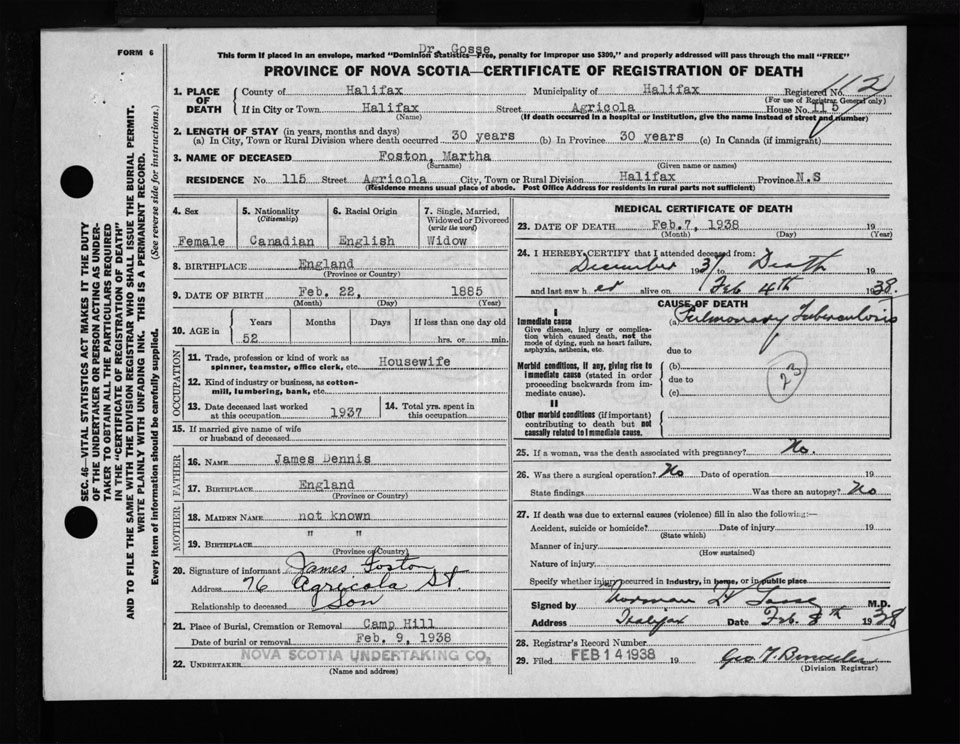 FORM 6
Dr. Gosse
This form if placed in an envelope, marked "Dominion Statistics—Free, penalty for improper use $300," and properly addressed will pass through the mail "FREE"
PROVINCE OF NOVA SCOTIA—CERTIFICATE OF REGISTRATION OF DEATH
SEC. 46—VITAL STATISTICS ACT MAKES IT THE DUTY
OF THE UNDERTAKER OR PERSON ACTING AS UNDER-
TAKER TO OBTAIN ALL THE PARTICULARS REQUIRED
IN THE "CERTIFICATE OF REGISTRATION OF DEATH"
AND TO FILE THE SAME WITH THE DIVISION REGISTRAR WHO SHALL ISSUE THE BURIAL PERMIT.
WRITE PLAINLY WITH UNFADING INK. THIS IS A PERMANENT RECORD.
Every item of information should be carefully supplied. (See reverse side for instructions.)
1. PLACE OF DEATH
County of Halifax Municipality of Halifax Registered No. 112
(For use of Registrar General only)
If in City or Town Halifax Street Agricola House No. 115
(Name) (If death occurred in a hospital or institution, give the name instead of street and number)
2. LENGTH OF STAY (in years, months and days)
(a) In City, Town or Rural Division where death occurred 30 years (b) In Province 30 years (c) In Canada (if immigrant)
3. NAME OF DECEASED Foston, Martha
(Surname) (Given name or names)
RESIDENCE No. 115 Street Agricola City, Town or Rural Division Halifax Province N.S
(Residence means usual place of abode. Post Office Address for residents in rural parts not sufficient)
4. Sex 5. Nationality (Citizenship) 6. Racial Origin 7. Single, Married, Widowed or Divorced (write the word)
Female Canadian English Widow
8. BIRTHPLACE England
(Province or Country)
9. DATE OF BIRTH Feb. 22, 1885
(Month) (Day) (Year)
10. AGE in Years Months Days If less than one day old
52 hrs. or min.
OCCUPATION
11. Trade, profession or kind of work as spinner, teamster, office clerk, etc. Housewife
12. Kind of industry or business, as cotton-mill, lumbering, bank, etc.
13. Date deceased last worked at this occupation 1937 14. Total yrs. spent in this occupation
15. If married give name of wife or husband of deceased
FATHER
16. NAME James Dennis
17. BIRTHPLACE England
(Province or Country)
MOTHER
18. MAIDEN NAME not known
19. BIRTHPLACE " "
(Province or Country)
20. Signature of informant James Foston
Address 76 Agricola St
Relationship to deceased Son
21. Place of Burial, Cremation or Removal Camp Hill
Date of burial or removal Feb. 9, 1938
22. UNDERTAKER NOVA SCOTIA UNDERTAKING CO.
(Name and address)
MEDICAL CERTIFICATE OF DEATH
23. DATE OF DEATH Feb. 7, 1938 19
(Month) (Day) (Year)
24. I HEREBY CERTIFY that I attended deceased from:
December 1937 to Death 19
and last saw her alive on Feb 4th 1938.
CAUSE OF DEATH
I
Immediate cause (a) Pulmonary Tuberculosis
Give disease, injury or complication which caused death, not the mode of dying, such as heart failure, asphyxia, asthenia, etc.
due to
Morbid conditions, if any, giving rise to immediate cause (stated in order proceeding backwards from immediate cause).
(b)
due to
(c)
23
II
Other morbid conditions (if important) contributing to death but not causally related to immediate cause.
25. If a woman, was the death associated with pregnancy? No.
26. Was there a surgical operation? No Date of operation 19
State findings Was there an autopsy? No
27. If death was due to external causes (violence) fill in also the following:—
Accident, suicide or homicide? Date of injury 19
(State which)
Manner of injury
(How sustained)
Nature of injury
Specify whether injury occurred in industry, in home, or in public place
Signed by Norman H Gosse M.D.
Address Halifax Date Feb. 8th 1938
28. Registrar's Record Number
29. Filed FEB 14 1938 19 Geo T.
(Division Registrar)